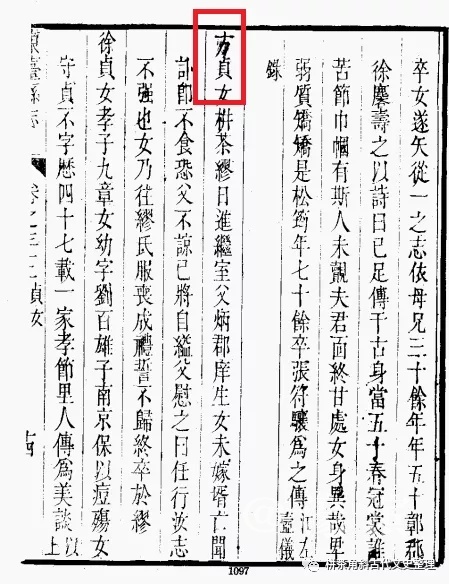 卒女遂矢從一之志依母兄三十餘年年五十郡
徐壽之以詩曰已足傳千古身當五十春冠裳誰
苦節巾幗有斯人未覿夫君面終甘處女身異哉
弱質矯矯是松筠年七十餘卒張符驤爲之傳江左壼儀
錄
方貞女栟茶繆日進繼室父炳郡庠生女未嫁壻亡聞
訃卽不食恐父不諒已將自縊父慰之曰任行汝志
不强也女乃往繆氏服喪成禮誓不歸終卒於繆
徐貞女孝子九章女幼字劉百雄子南京保以痘殤女
守貞不字歷四十七載一家孝節里人傳爲美談以上
東臺縣志 卷之三十二 貞女 十四
1097
栟茶角斜古代文史整理